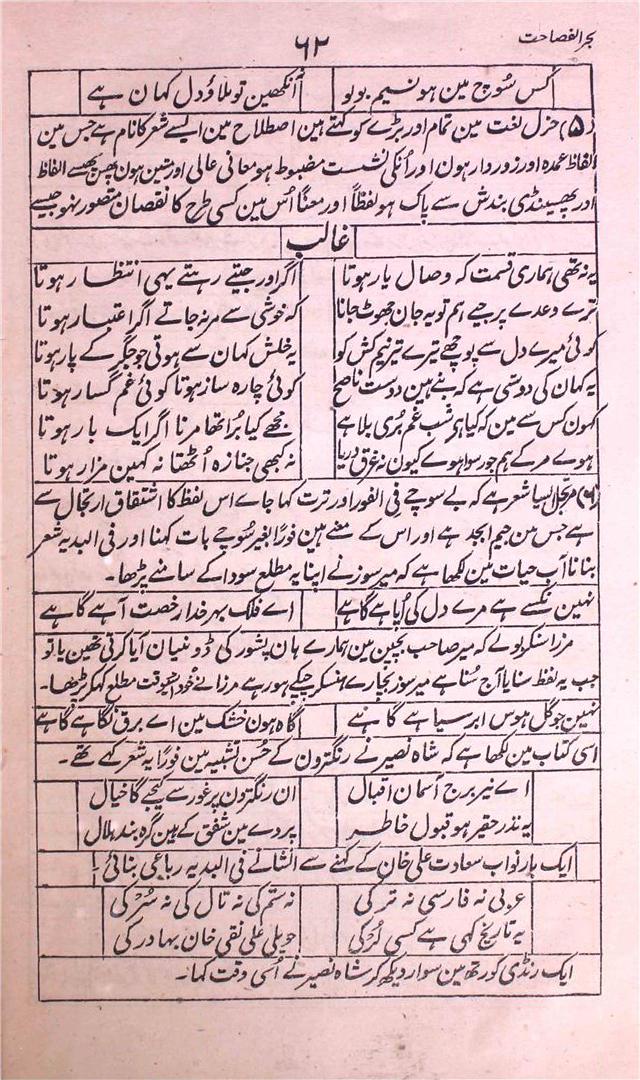 بحر الفصاحت
٦٢
کس سُوچ مین ہو نسیم بولو آنکھین تو ملاؤ دل کہان ہے
(۵) جزل لغت مین تمام اور بڑے کو کہتے ہین اصطلاح مین ایسے شعر کا نام ہے جس مین
الفاظ عمدہ اور زوردار ہون اور اُنکی نشست مضبوط ہو معانی عالی اور متین ہون پھس پھسے الفاظ
اور پھسینڈی بندش سے پاک ہو لفظاً اور معنًا اُس مین کسی طرح کا نقصان متصور نہو جیسے
غالب
یہ نہ تھی ہماری قسمت کہ وصال یار ہوتا اگر اور جیتے رہتے یہی انتظار ہوتا
ترے وعدے پر جیے ہم تو یہ جان جھوٹ جانا کہ خوشی سے مر نہ جاتے اگر اعتبار ہوتا
کوئی میرے دل سے پوچھے تیرے تیر نیم کش کو یہ خلش کہان سے ہوتی جو جگر کے پار ہوتا
یہ کہان کی دوستی ہے کہ بنے ہین دوست ناصح کوئی چارہ ساز ہوتا کوئی غم گسار ہوتا
کہون کس سے مین کہ کیا ہے شب غم بُری بلا ہے مجھے کیا بُرا تھا مرنا اگر ایک بار ہوتا
ہوے مر کے ہم جو رسوا ہوے کیون نہ غرق دریا نہ کبھی جنازہ اُٹھتا نہ کہین مزار ہوتا
(٦) مرتجل ایسا شعر ہے کہ بے سوچے فی الفور اور ترت کہا جاے اس لفظ کا اشتقاق ارتجال سے
ہے جس مین جیم ابجد ہے اور اس کے معنے ہین فورًا بغیر سُوچے بات کہنا اور فی البدیہ شعر
بنانا آب حیات مین لکھا ہے کہ میر سوز نے اپنا یہ مطلع سودا کے سامنے پڑھا۔
نہین نکسے ہے مرے دل کی اُپاہے گاہے اے فلک بہر خدا رخصت آہے گاہے
مرزا سنکر بولے کہ میر صاحب بچپن مین ہمارے ہان پشور کی ڈومنیان آیا کرتی تھین یا تو
جب یہ لفظ سنا یا آج سُنا ہے میر سوز بچارے ہنسکر چپکے ہو رہے مرزا نے خود اُسوقت مطلع کہکر پڑھا۔
نہین جو گل ہوس ابر سیاہے گاہے گاہ ہون خشک مین اے برق نگاہے گاہے
اسی کتاب مین لکھا ہے کہ شاہ نصیر نے رنگترون کے حُسن تشبیہ مین فورًا یہ شعر کہے تھے۔
اے نیر برج آسمان اقبال ان رنگترون پر غور سے کیجے گا خیال
یہ نذر حقیر ہو قبول خاطر پردے مین شفق کے ہین گرہ بند ہلال
ایک بار نواب سعادت علی خان کے کہنے سے انشا نے فی البدیہ رباعی بنائی۔
عربی نہ فارسی نہ ترکی نہ سَم کی نہ تال کی نہ سُر کی
یہ تاریخ کہی ہے کسی لُر کی حویلی علی نقی خان بہادر کی
ایک رنڈی کو رتھ مین سوار دیکھ کر شاہ نصیر نے اُسی وقت کہا۔